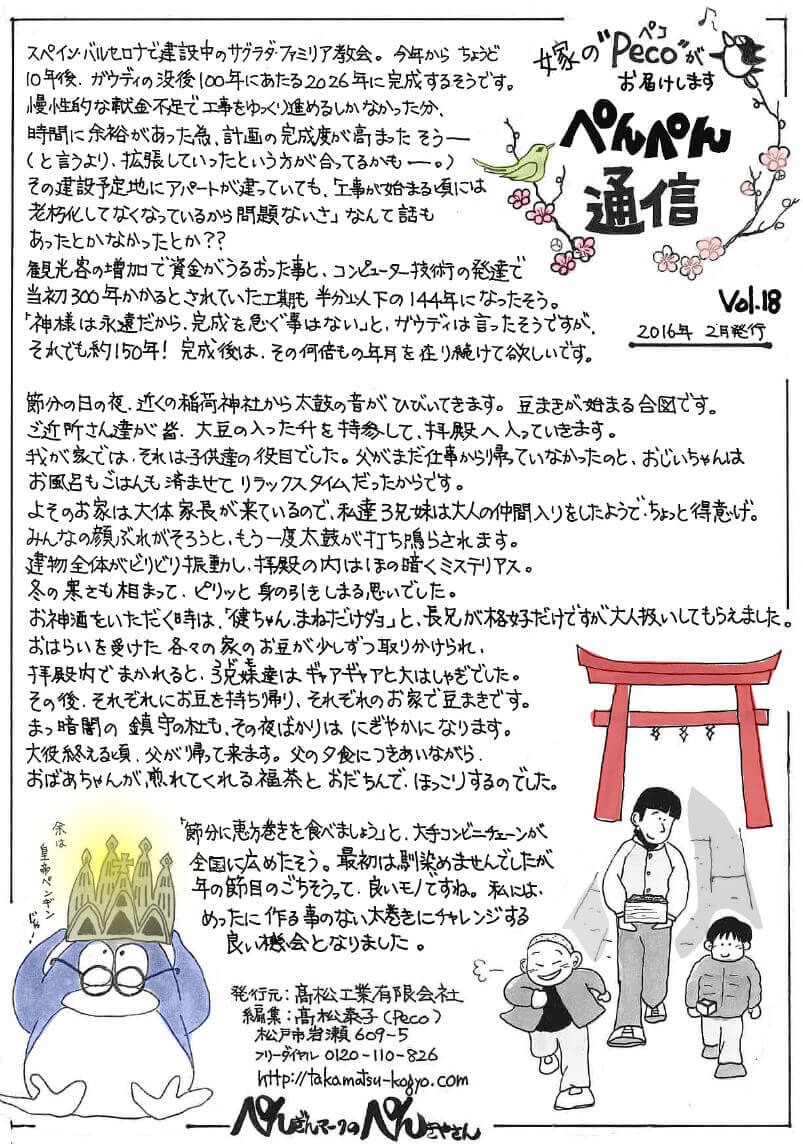 嫁の"Peco"が
ペコ
お届けします
ぺんぺん
通信
Vol.18
2016年 2月発行
スペイン・バルセロナで建設中のサグラダ・ファミリア教会。今年から ちょうど
10年後、ガウディの没後100年にあたる2026年に完成するそうです。
慢性的な献金不足で工事をゆっくり進めるしかなかった分、
時間に余裕があった為、計画の完成度が高まった そうー
(と言うより、拡張していったという方が合ってるかもー。)
その建設予定地にアパートが建っていても、「工事が始まる頃には
老朽化してなくなっているから問題ないさ」なんて話も
あったとかなかったとか??
観光客の増加で資金がうるおった事と、コンピューター技術の発達で
当初300年かかるとされていた工期も 半分以下の144年になったそう。
「神様は永遠だから、完成を急ぐ事はない」と、ガウディは言ったそうですが、
それでも約150年! 完成後は、その何倍もの年月を在り続けて欲しいです。
節分の日の夜、近くの稲荷神社から太鼓の音が ひびいてきます。豆まきが始まる合図です。
ご近所さん達が皆、大豆の入った升を持参して、拝殿へ入っていきます。
我が家では、それは子供達の役目でした。父がまだ仕事から帰っていなかったのと、おじいちゃんは
お風呂もごはんも済ませてリラックスタイムだったからです。
よそのお家は大体家長が来ているので、私達3兄妹は大人の仲間入りをしたようで、ちょっと得意げ。
みんなの顔ぶれがそろうと、もう一度太鼓が打ち鳴らされます。
建物全体がビリビリ振動し、拝殿の内はほの暗くミステリアス。
冬の寒さも相まって、ピリッと身の引きしまる思いでした。
お神酒をいただく時は、「健ちゃん、まねだけダヨ」と、長兄が格好だけですが大人扱いしてもらえました。
おはらいを受けた 各々の家のお豆が少しずつ取りわけられ、
拝殿内でまかれると、3兄妹達はギャアギャアと大はしゃぎでした。
その後、それぞれにお豆を持ち帰り、それぞれのお家で豆まきです。
まっ暗闇の 鎮守の杜も、その夜ばかりは にぎやかになります。
大役終える頃、父が帰って来ます。父の夕食につきあいながら、
おばあちゃんが煎れてくれる福茶と おだちんで、ほっこりするのでした。
余は
皇帝ペンギン
じゃ!
「節分に恵方巻きを食べましょう」と、大手コンビニチェーンが
全国に広めたそう。最初は馴染めませんでしたが
年の節目のごちそうって、良いモノですね。私には、
めったに作る事のない太巻きにチャレンジする
良い機会となりました。
発行元:髙松工業有限会社
編集:髙松素子(Peco)
松戸市岩瀬609-5
フリーダイヤル 0120-110-826
http://takamatsu-kogyo.com
ぺんぎんマークのぺんきやさん